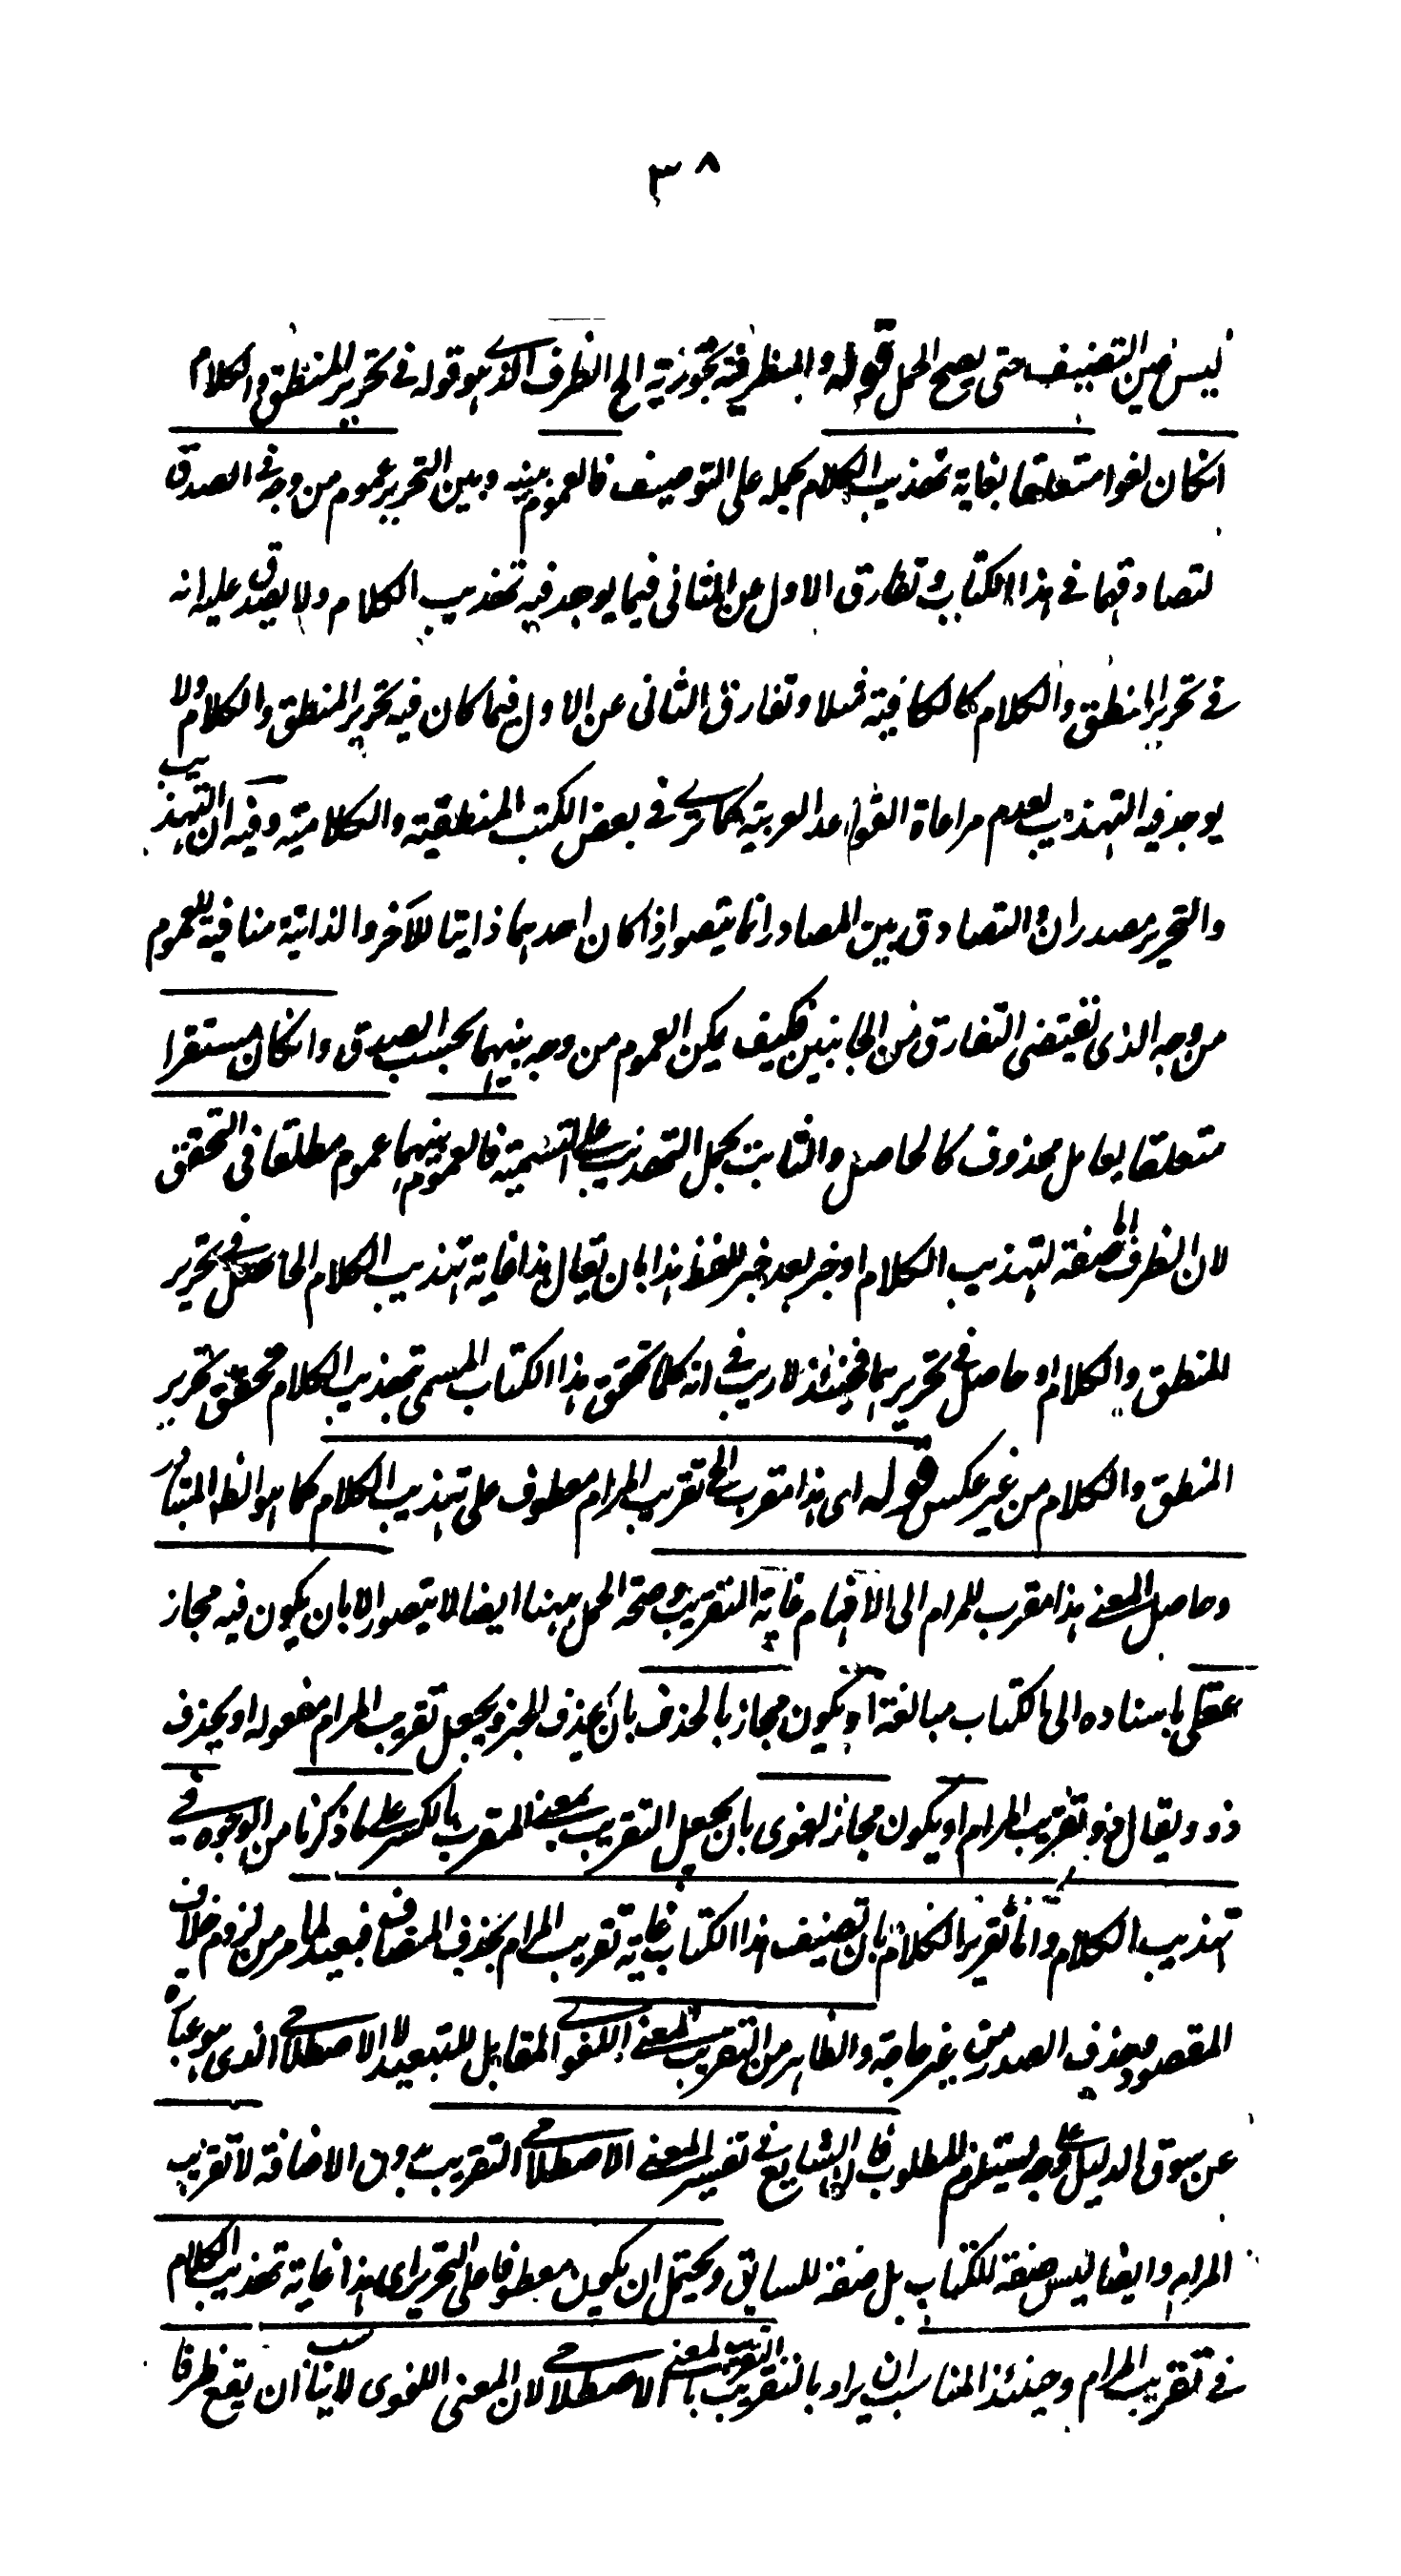 ٣٨
ليس عين التصنيف حتى يصح الحمل قوله والمظرفية تجوزية الخ الظرف الذي هو قوله في تحرير المنطق والكلام
انكان لغوا متعلقا بغاية تهذيب الكلام بحمله على التوصيف فالعموم بينه وبين التحرير عموم من وجه في الصدق
لتصادقهما في هذا الكتاب وتفارق الاول عن الثانى فيما يوجد فيه تهذيب الكلام ولا يصدق عليه انه
في تحرير المنطق والكلام كالكافية مثلا وتفارق الثانى عن الاول فيما كان فيه تحرير المنطق والكلام ولا
يوجد فيه التهذيب لعدم مراعاة القواعد العربية كما ترى في بعض الكتب المنطقية والكلامية وفيه ان التهذيب
والتحرير مصدران والتصادق بين المصادر انما يتصور اذا كان احدهما ذاتيا للآخر والذاتية منافية للعموم
من وجه الذى يقتضى التفارق من الجانبين فكيف يمكن العموم من وجه بينهما بحسب الصدق وانكان مستقرا
متعلقا بعامل محذوف كالحاصل والثابت بحمل التهذيب على التسمية فالعموم بينهما عموم مطلقا فى التحقق
لان الظرف اما صفة لتهذيب الكلام او خبر بعد خبر للفظ هذا بان يقال هذا غاية تهذيب الكلام الحاصل في تحرير
المنطق والكلام او حاصل في تحريرهما فحينئذ لا ريب في انه كلما تحقق هذا الكتاب المسمى بتهذيب الكلام تحقق تحرير
المنطق والكلام من غير عكس قوله اى هذا مقرب الخ تقريب المرام معطوف على تهذيب الكلام كما هو الظ المتبادر
وحاصل المعنى هذا مقرب للمرام الى الافهام غاية التقريب وصحة الحمل ههنا ايضا لا يتصور الا بان يكون فيه مجاز
عقلى باسناده الى الكتاب مبالغة او يكون مجاز بالحذف بان يحذف الخبر ويجعل تقريب المرام مفعوله او يحذف
ذو ويقال ذو تقريب المرام او يكون مجاز لغوى بان يجعل التقريب بمعنى المقرب بالكسر على ما ذكرنا من الوجوه في
تهذيب الكلام واما تقرير الكلام بان تصنيف هذا الكتاب غاية تقريب المرام بحذف المضاف فبعيد لما مر من لزوم خلاف
المقصود وحذف الصدر من غير حاجة والظاهر من التقريب المعنى اللغوى المقابل للتبعيد لا الاصطلاحى الذى هو عبارة
عن سوق الدليل على وجه يستلزم المطلوب فان الشايع في تفسير المعنى الاصطلاحى التقريب بدون الاضافة لا تقريب
المرام وايضا ليس صفة للكتاب بل صفة للسابق ويحتمل ان يكون معطوفا على التحرير اى هذا غاية تهذيب الكلام
في تقريب المرام وحينئذ المناسب ان يراد بالتقريب التقريب بالمعنى الاصطلاحى لان المعنى اللغوى لا يناسب ان يقع ظرفا